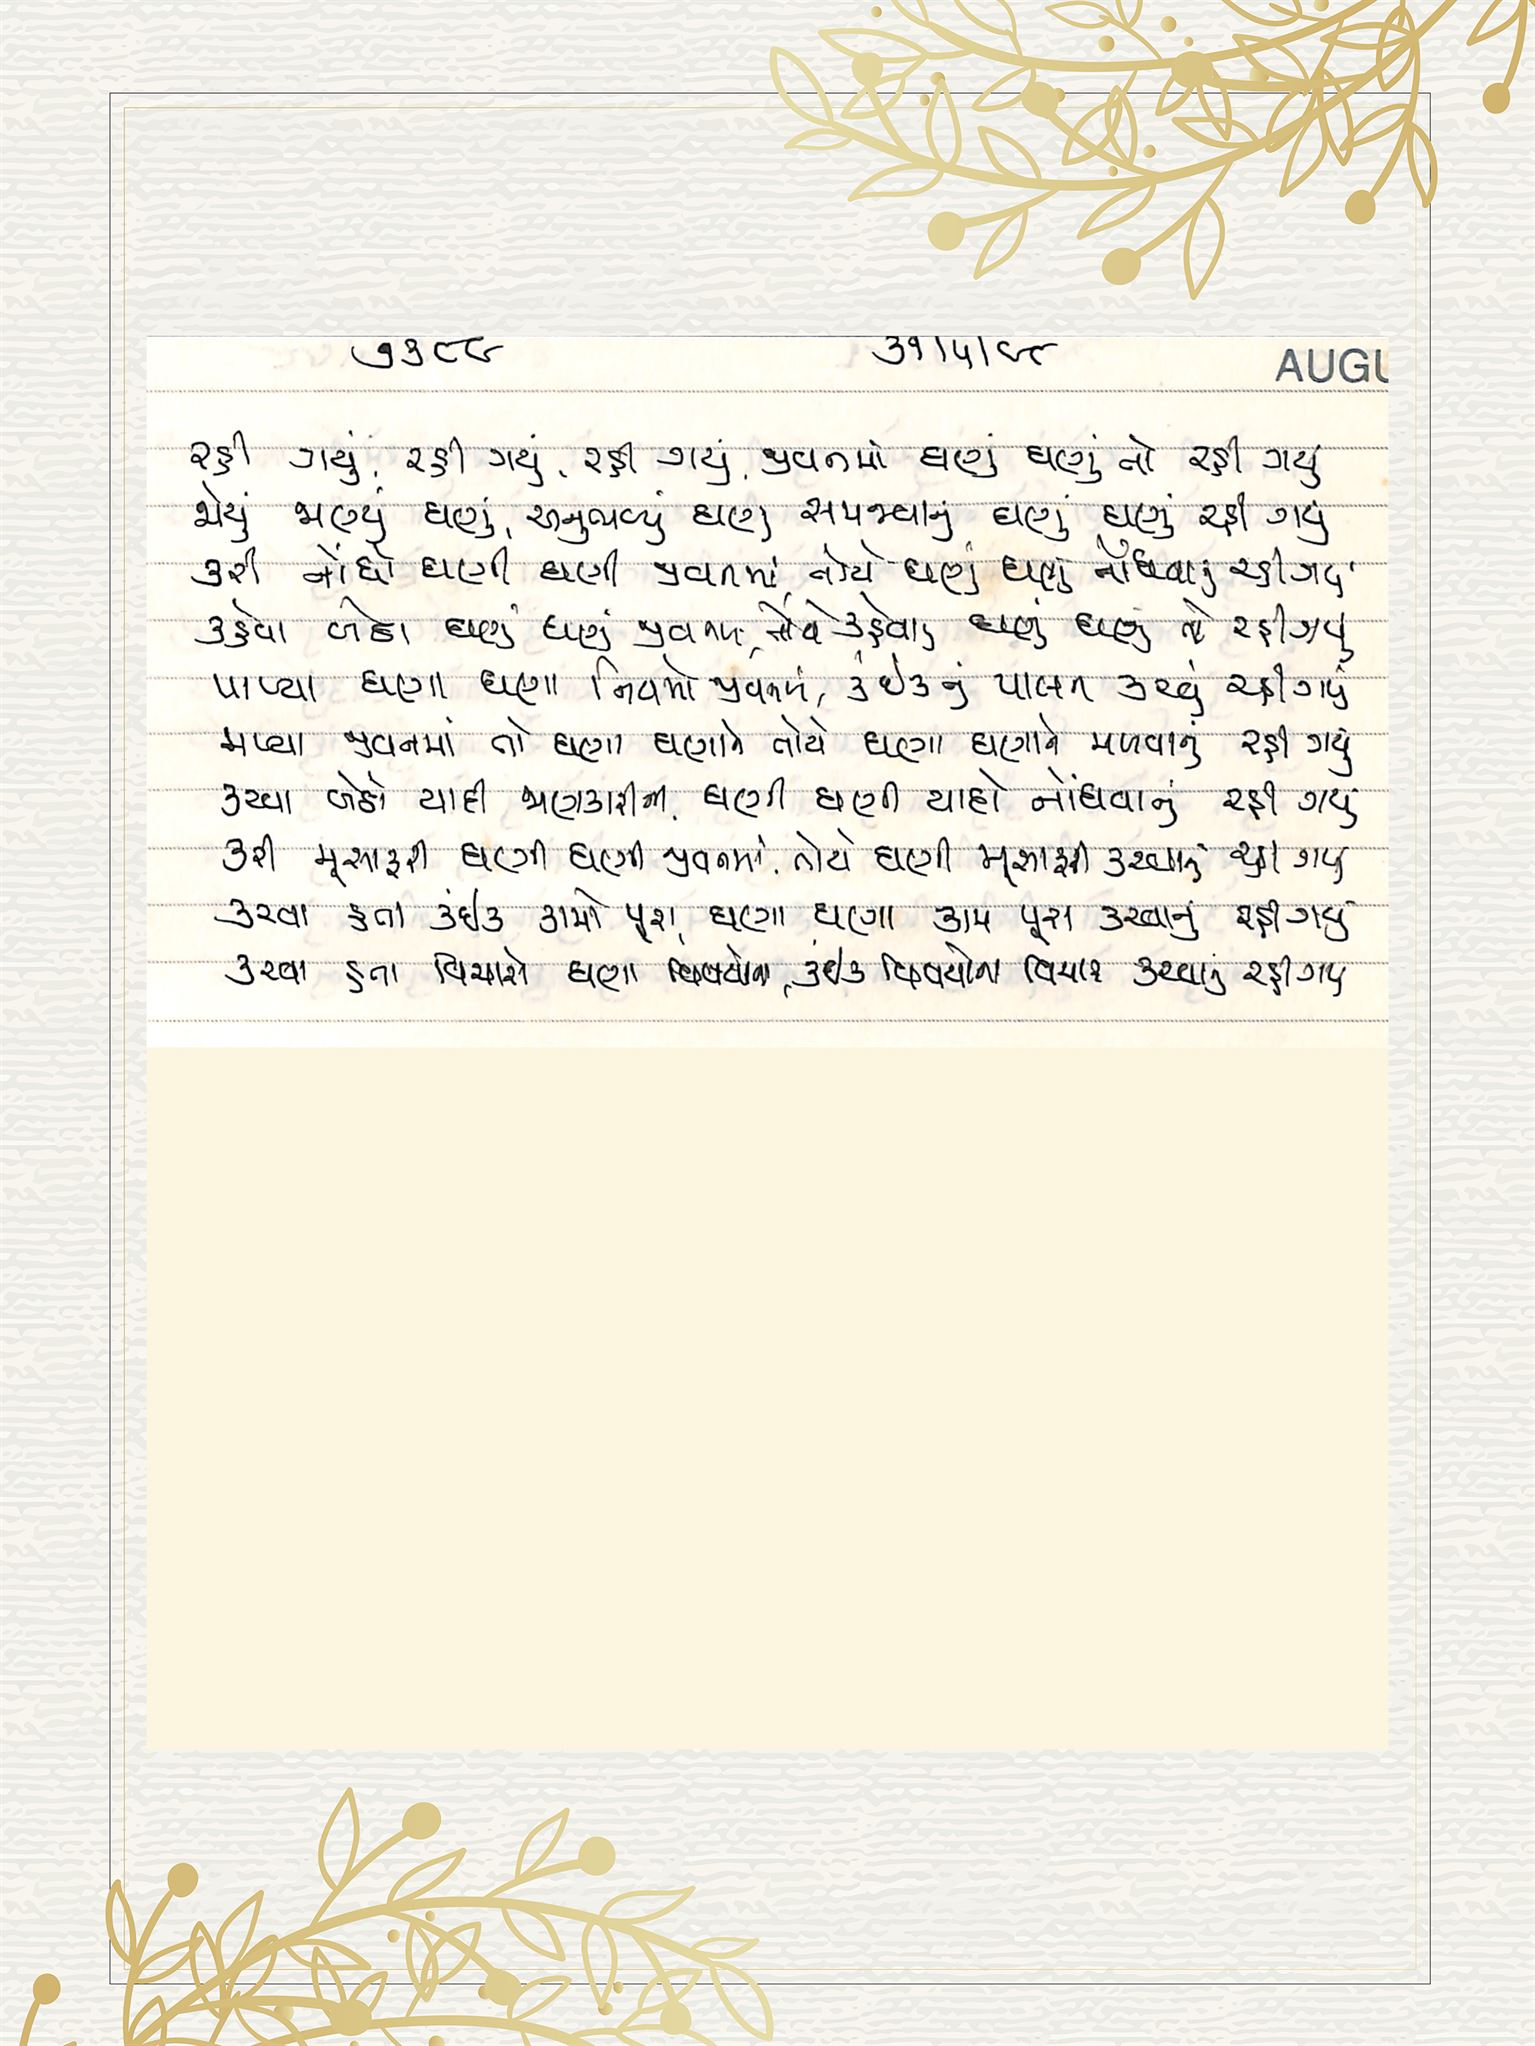 ૭૩૮૮ ૩૧।૫।૯૮ AUGU
રહી ગયું, રહી ગયું, રહી ગયું, જીવનમાં ઘણું ઘણું તો રહી ગયું
જોયું જાણ્યું ઘણું, અનુભવ્યું ઘણું સમજવાનું ઘણું ઘણું રહી ગયું
કરી નોંધો ઘણી ઘણી જીવનમાં, તોયે ઘણું ઘણું નોંધવાનું રહી ગયું
કહેવા બેઠા ઘણું ઘણું જીવનમાં, તોયે કહેવાનું ઘણું ઘણું તો રહી ગયું
પાળ્યા ઘણા ઘણા નિયમો જીવનમાં, કંઈકનું પાલન કરવું રહી ગયું
મળ્યા જીવનમાં તો ઘણા ઘણાને તોયે ઘણા ઘણાને મળવાનું રહી ગયું
કરવા બેઠો યાદી જાણકારીની, ઘણી ઘણી યાદો નોંધવાનું રહી ગયું
કરી મૂસાફરી ઘણી ઘણી જીવનમાં, તોયે ઘણી મૂસાફરી કરવાનું રહી ગયું
કરવા હતા કંઈક કામો પૂરા, ઘણા ઘણા કામ પૂરા કરવાનું રહી ગયું
કરવા હતા વિચારો ઘણા વિષયોના, કંઈક વિષયોના વિચાર કરવાનું રહી ગયું